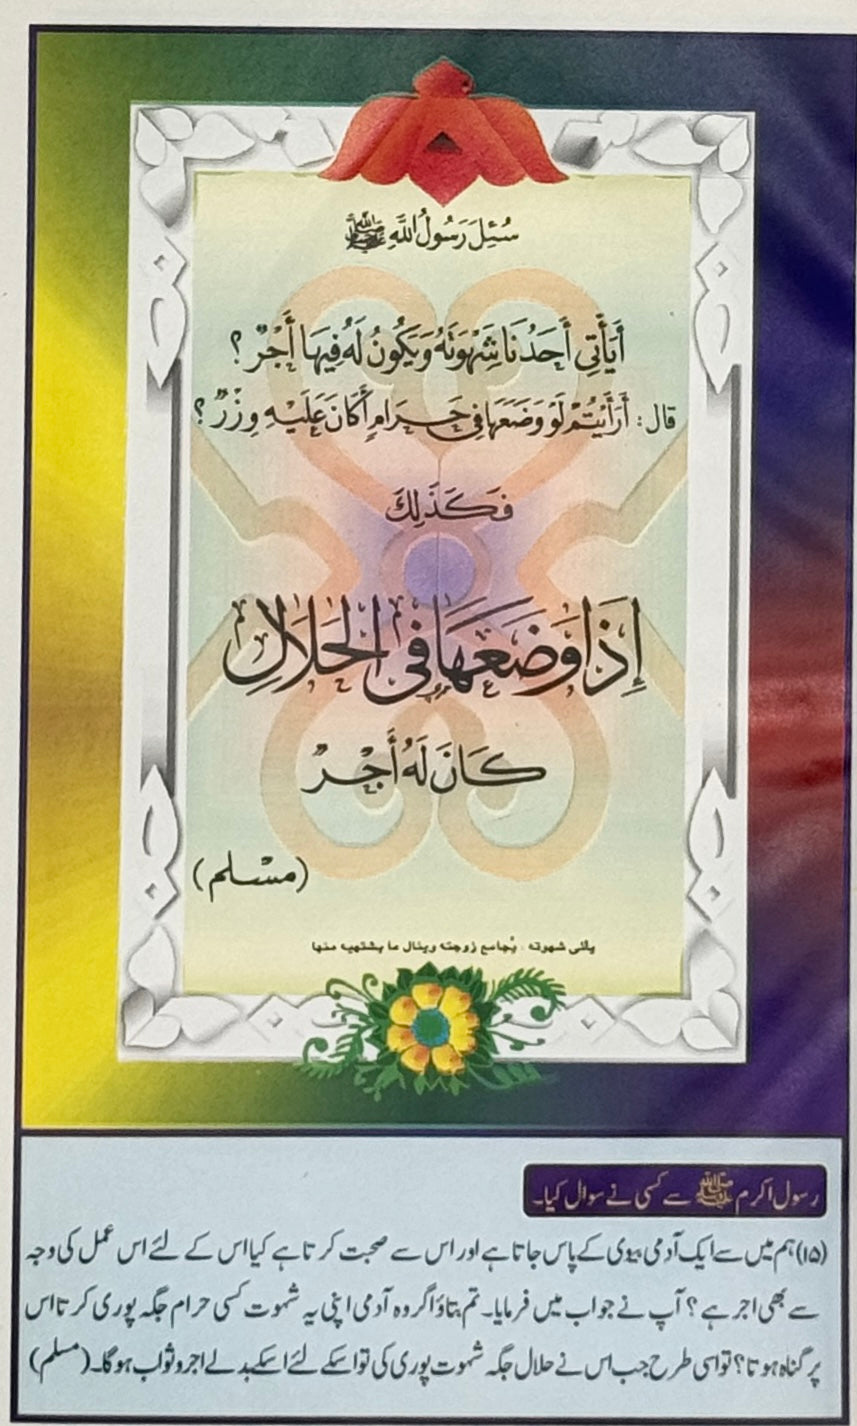 سُئِلَ رَسُولُ اللَّهِ ﷺ
أَيَأْتِي أَحَدُنَا شَهْوَتَهُ وَيَكُونُ لَهُ فِيهَا أَجْرٌ ؟
قال : أَرَأَيْتُمْ لَوْ وَضَعَهَا فِي حَرَامٍ أَكَانَ عَلَيْهِ وِزْرٌ ؟
فَكَذَلِكَ
إِذَا وَضَعَهَا فِي الْحَلَالِ
كَانَ لَهُ أَجْرٌ
(مسلم)
يأتي شهوته : يُجامع زوجته وينال ما يشتهيه منها
رسول اکرم ﷺ سے کسی نے سوال کیا۔
(۱۵) ہم میں سے ایک آدمی بیوی کے پاس جاتا ہے اور اس سے صحبت کرتا ہے کیا اس کے لئے اس عمل کی وجہ
سے بھی اجر ہے ؟ آپ نے جواب میں فرمایا۔ تم بتاؤ اگر وہ آدمی اپنی یہ شہوت کسی حرام جگہ پوری کرتا اس
پر گناہ ہوتا؟ تو اسی طرح جب اس نے حلال جگہ شہوت پوری کی تو اسکے لئے اسکے بدلے اجر و ثواب ہوگا۔ (مسلم)